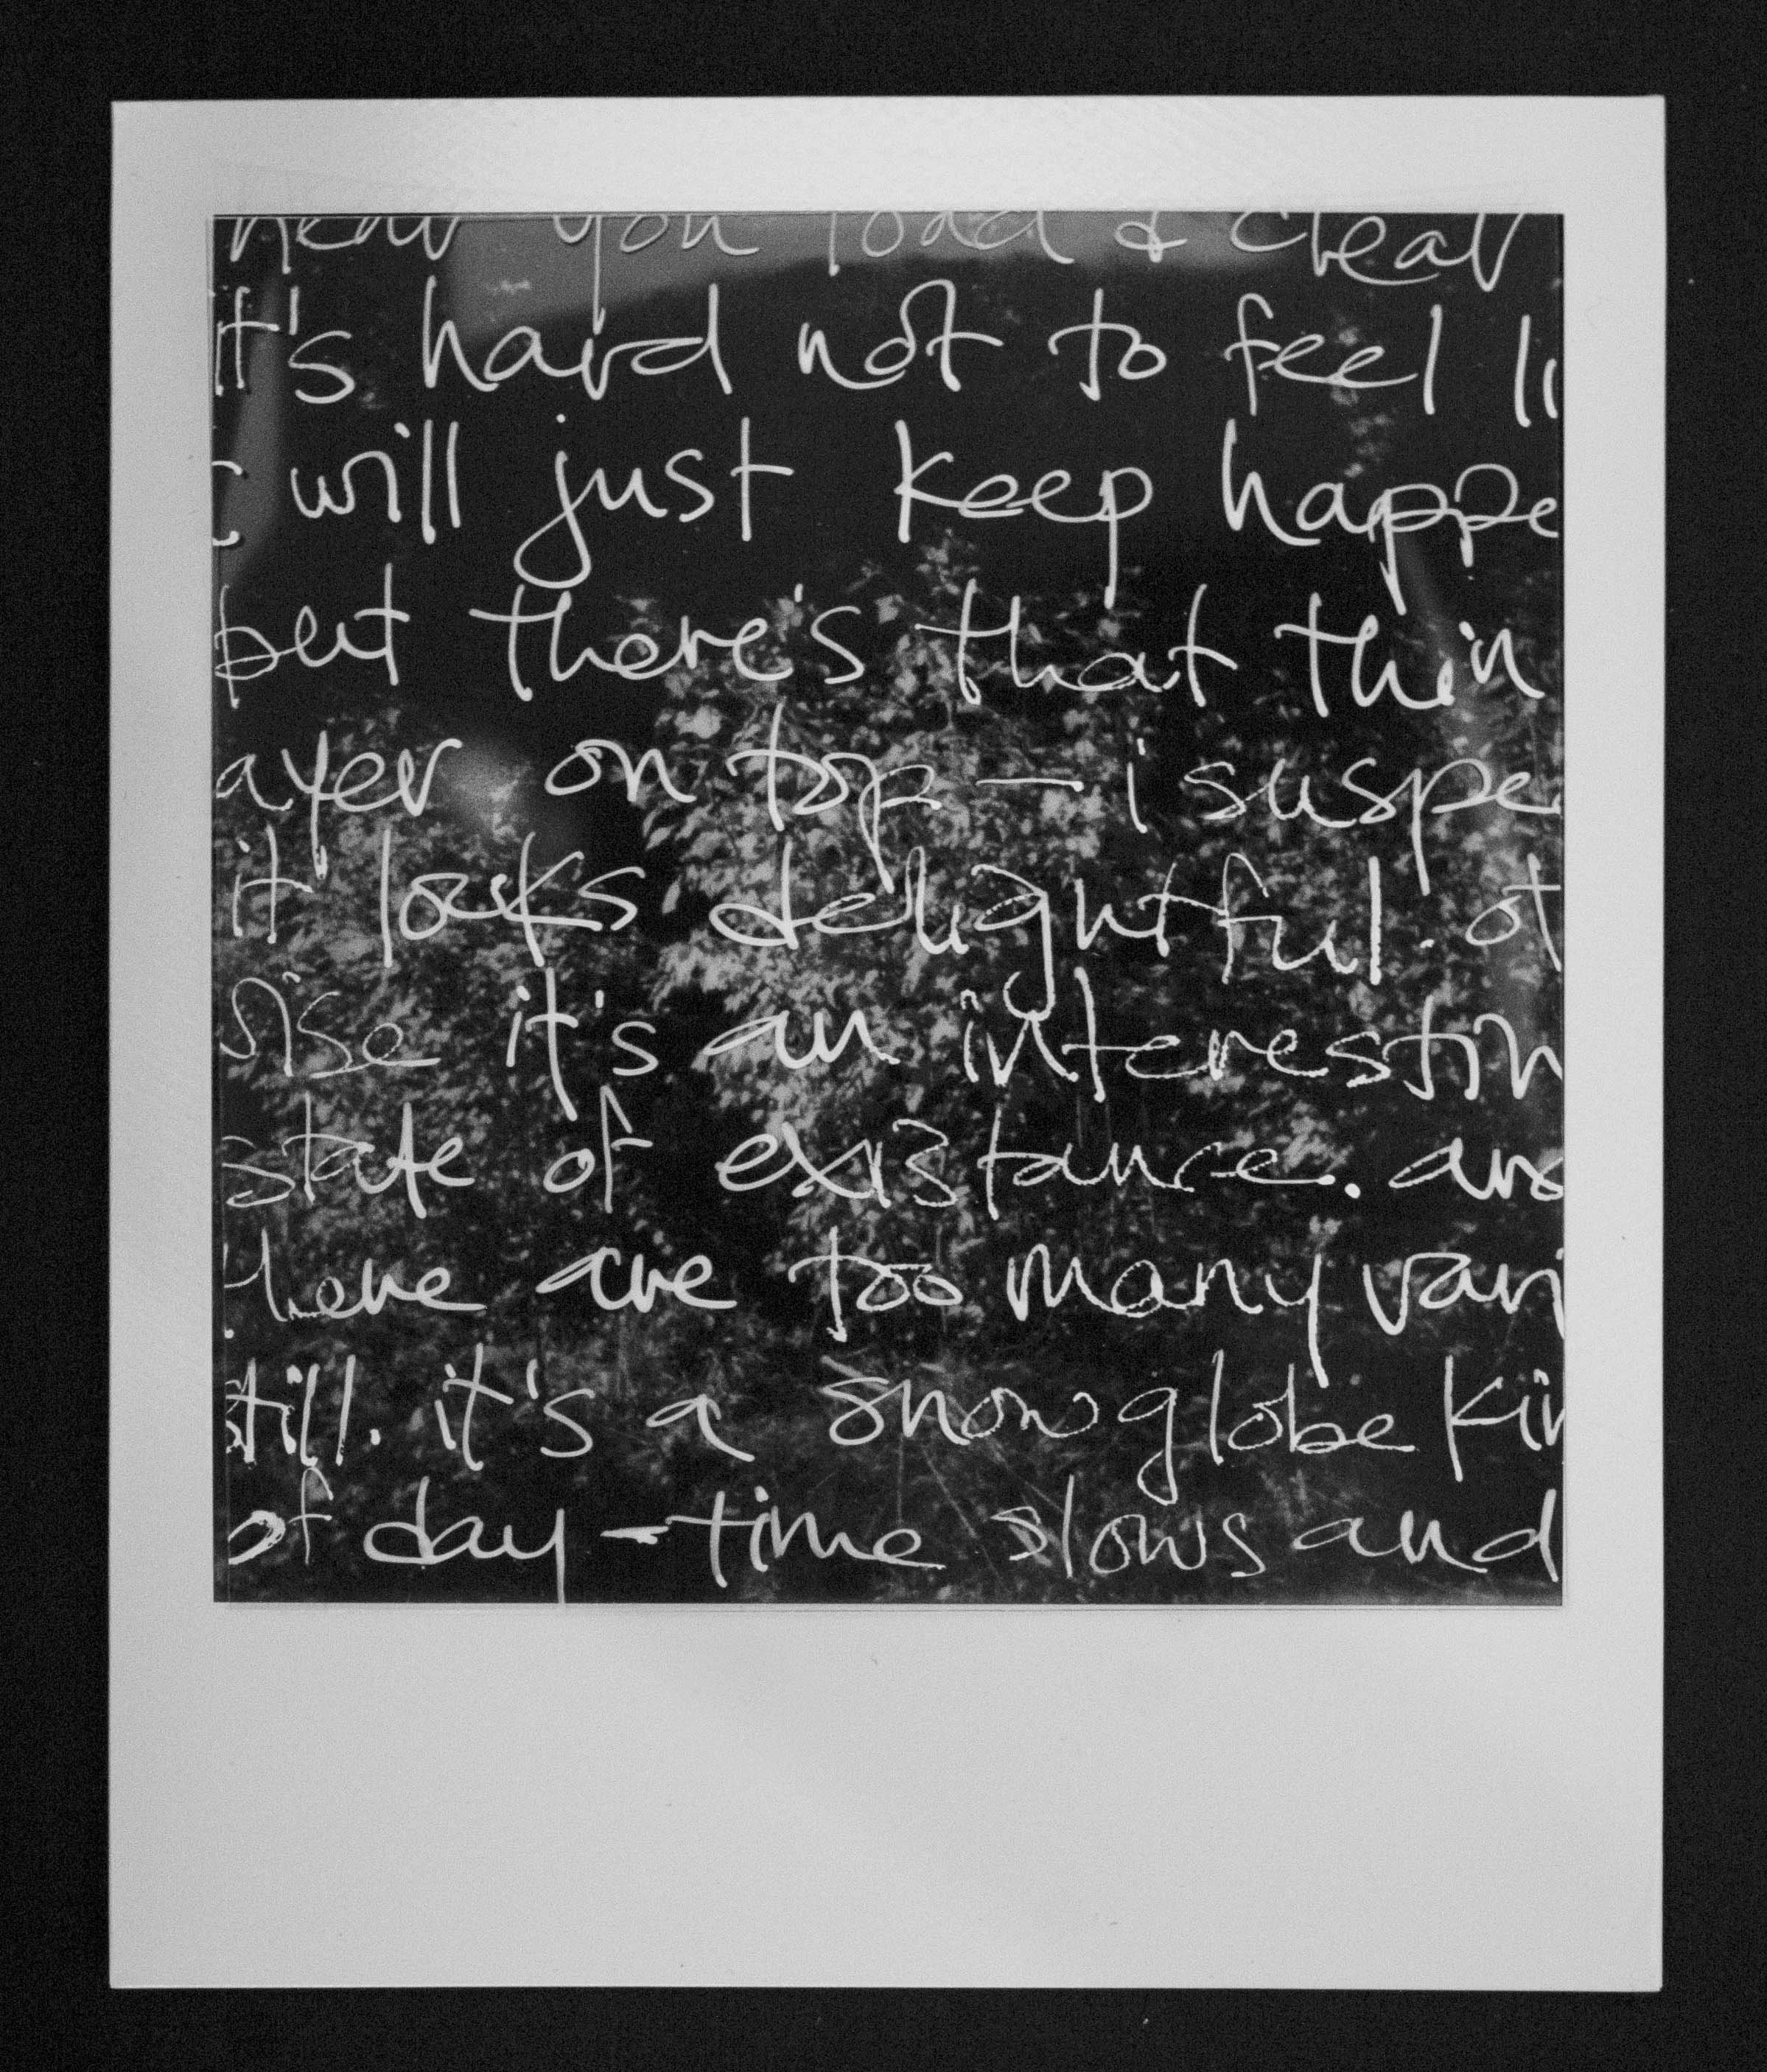 hear you load & clear
it's hard not to feel li
will just keep happe
but there's that thin
ayer on top — i suspe
it looks delightful. ot
rise it's an interestin
state of existance. and
there are too many vari
still. it's a snowglobe kin
of day — time slows and